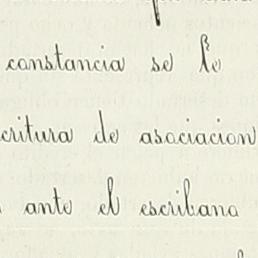 constancia se le
critura de asociacion
ante el escribano